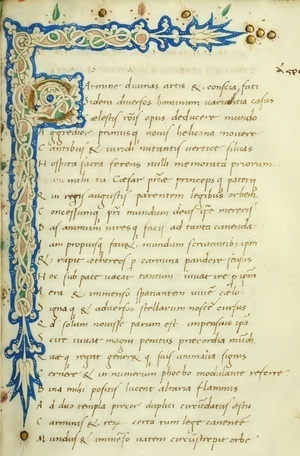 Carmine divinas artis & conscia fati
Sidera diversos hominum variantia casus
Cęlestis rōis opus deducere mundo
ggredior primusq novis helicona movere
Cantibus & viridi nutantis vertice silvas
Hospita sacra ferens nulli memorata priorum
anc mihi tu Cęsar patrię princepsq paterq
in regis augustis parentem legibus orbem
Concessumq pri mundum deus ipse mereris
Das animum viresq facis ad tanta canenda
am propiusq favet mundus scrutantibs ipm
Et cupit ęthereos p carmina pandere sensus
Hoc sub pace vacat tantum iuvat ire p ipm
era & immenso spatiantem vivere cęlo
ignaq & adversos stellarum noscere cursus
d solum novisse parum est impensius ipa
cire iuvat magni penitus pręcordia mundi
uęq regat generetq suis animalia signis
ernere & in numerum phoebo modulante referre
ina mihi positis lucent altaria flammis
Ad duo templa precor duplici circūdatus ęstu
Carminis & rerum certa cum lege canentem
Mundus & immēso vatem circustrepit orbe